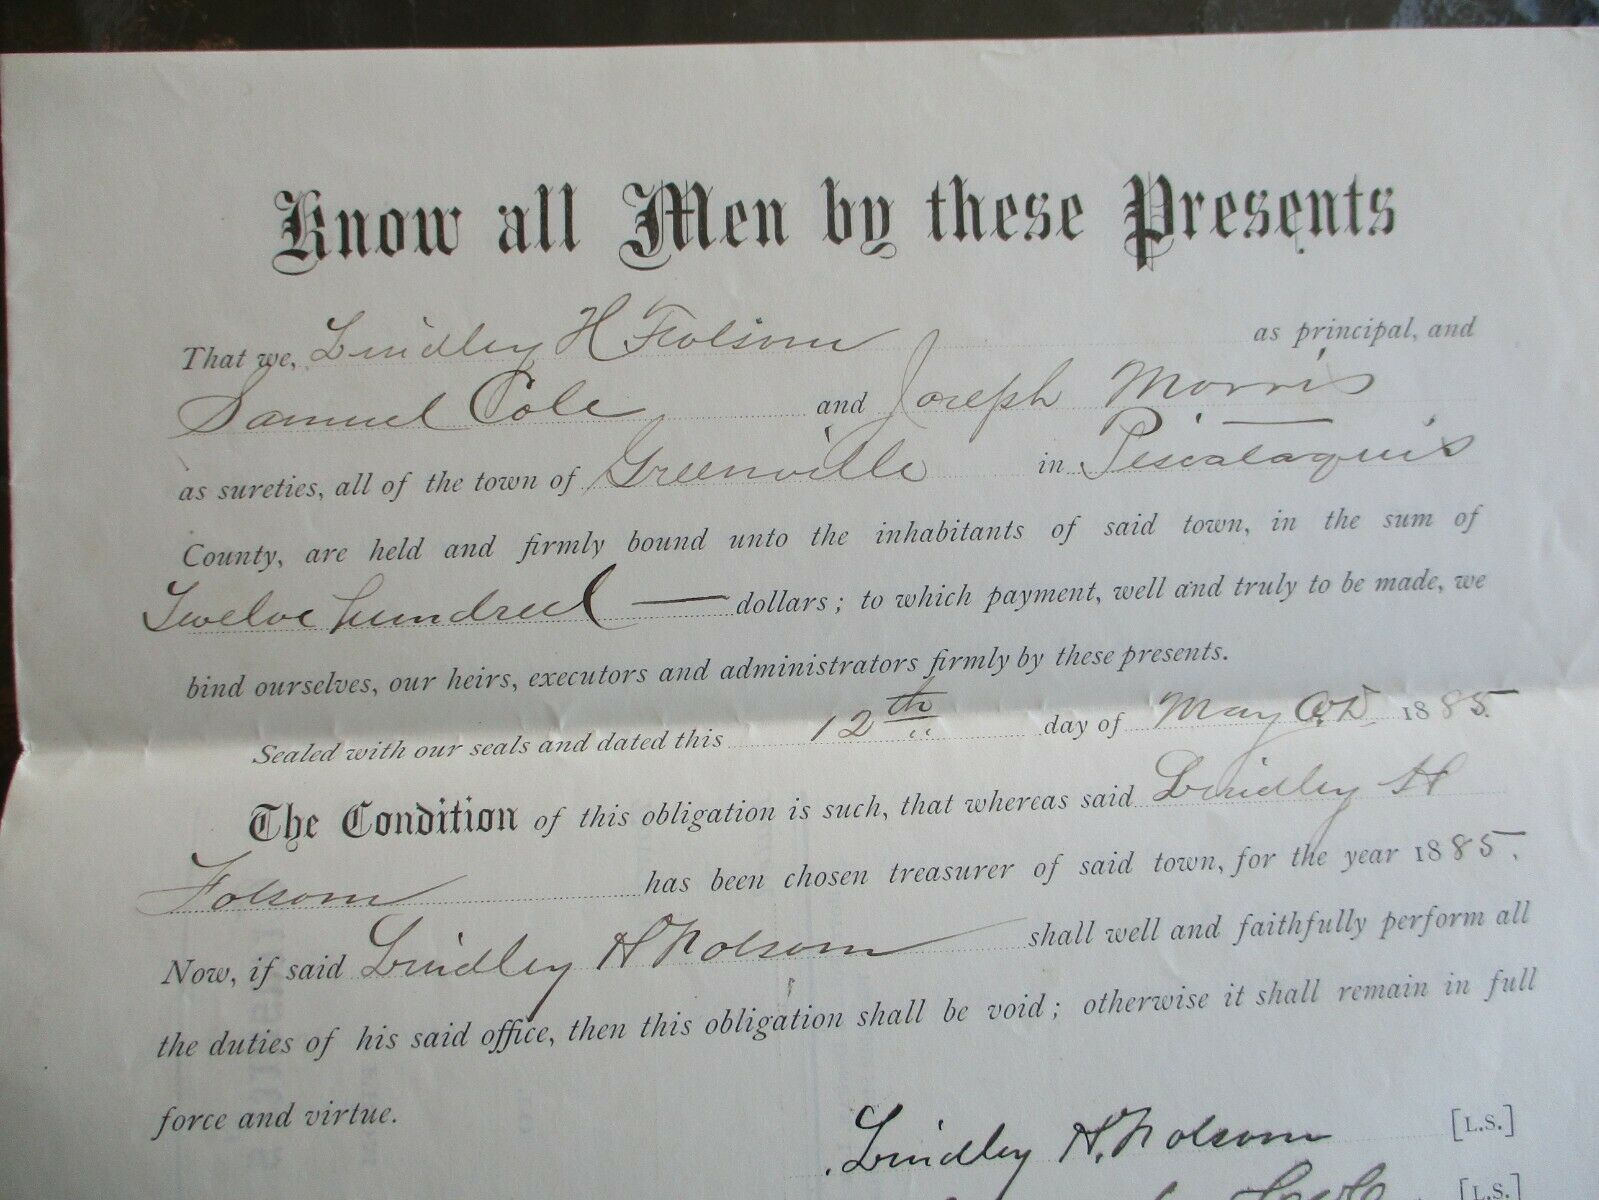 Know all Men by these Presents
That we, Lindley H Folsom as principal, and
Samuel Cole and Joseph Morris
as sureties, all of the town of Greenville in Piscataquis
County, are held and firmly bound unto the inhabitants of said town, in the sum of
Twelve hundred dollars; to which payment, well and truly to be made, we
bind ourselves, our heirs, executors and administrators firmly by these presents.
Sealed with our seals and dated this 12th day of May A.D. 1885.
The Condition of this obligation is such, that whereas said Lindley H
Folsom has been chosen treasurer of said town, for the year 1885.
Now, if said Lindley H Folsom shall well and faithfully perform all
the duties of his said office, then this obligation shall be void; otherwise it shall remain in full
force and virtue.
Lindley H. Folsom [L.S.]
[L.S.]